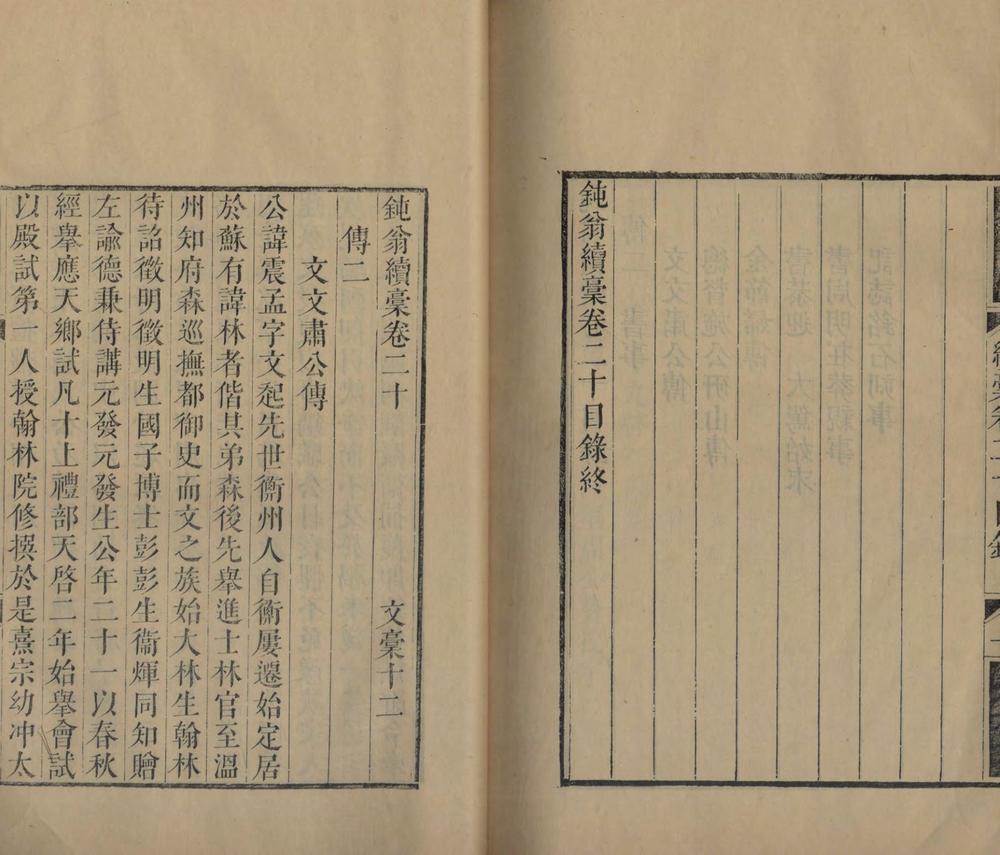 鈍翁續藁卷二十目錄終
鈍翁續藁卷二十 文藁十二
傳二
文文肅公傳
公諱震孟字文起先世衡州人自衡屢遷始定居
於蘇有諱林者偕其弟森後先舉進士林官至溫
州知府森巡撫都御史而文之族始大林生翰林
待詔徵明徵明生國子博士彭彭生衞輝同知贈
左諭德兼侍講元發元發生公年二十一以春秋
經舉應天鄉試凡十上禮部天啓二年始舉會試
以殿試第一人授翰林院修撰於是熹宗幼冲太